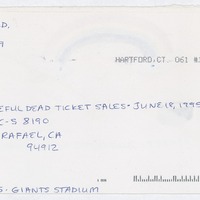 D,
9
HARTFORD, CT 061 #
EFUL DEAD TICKET SALES - JUNE 18, 1995
C-S 8190
RAFAEL, CA
94912
S - GIANTS STADIUM